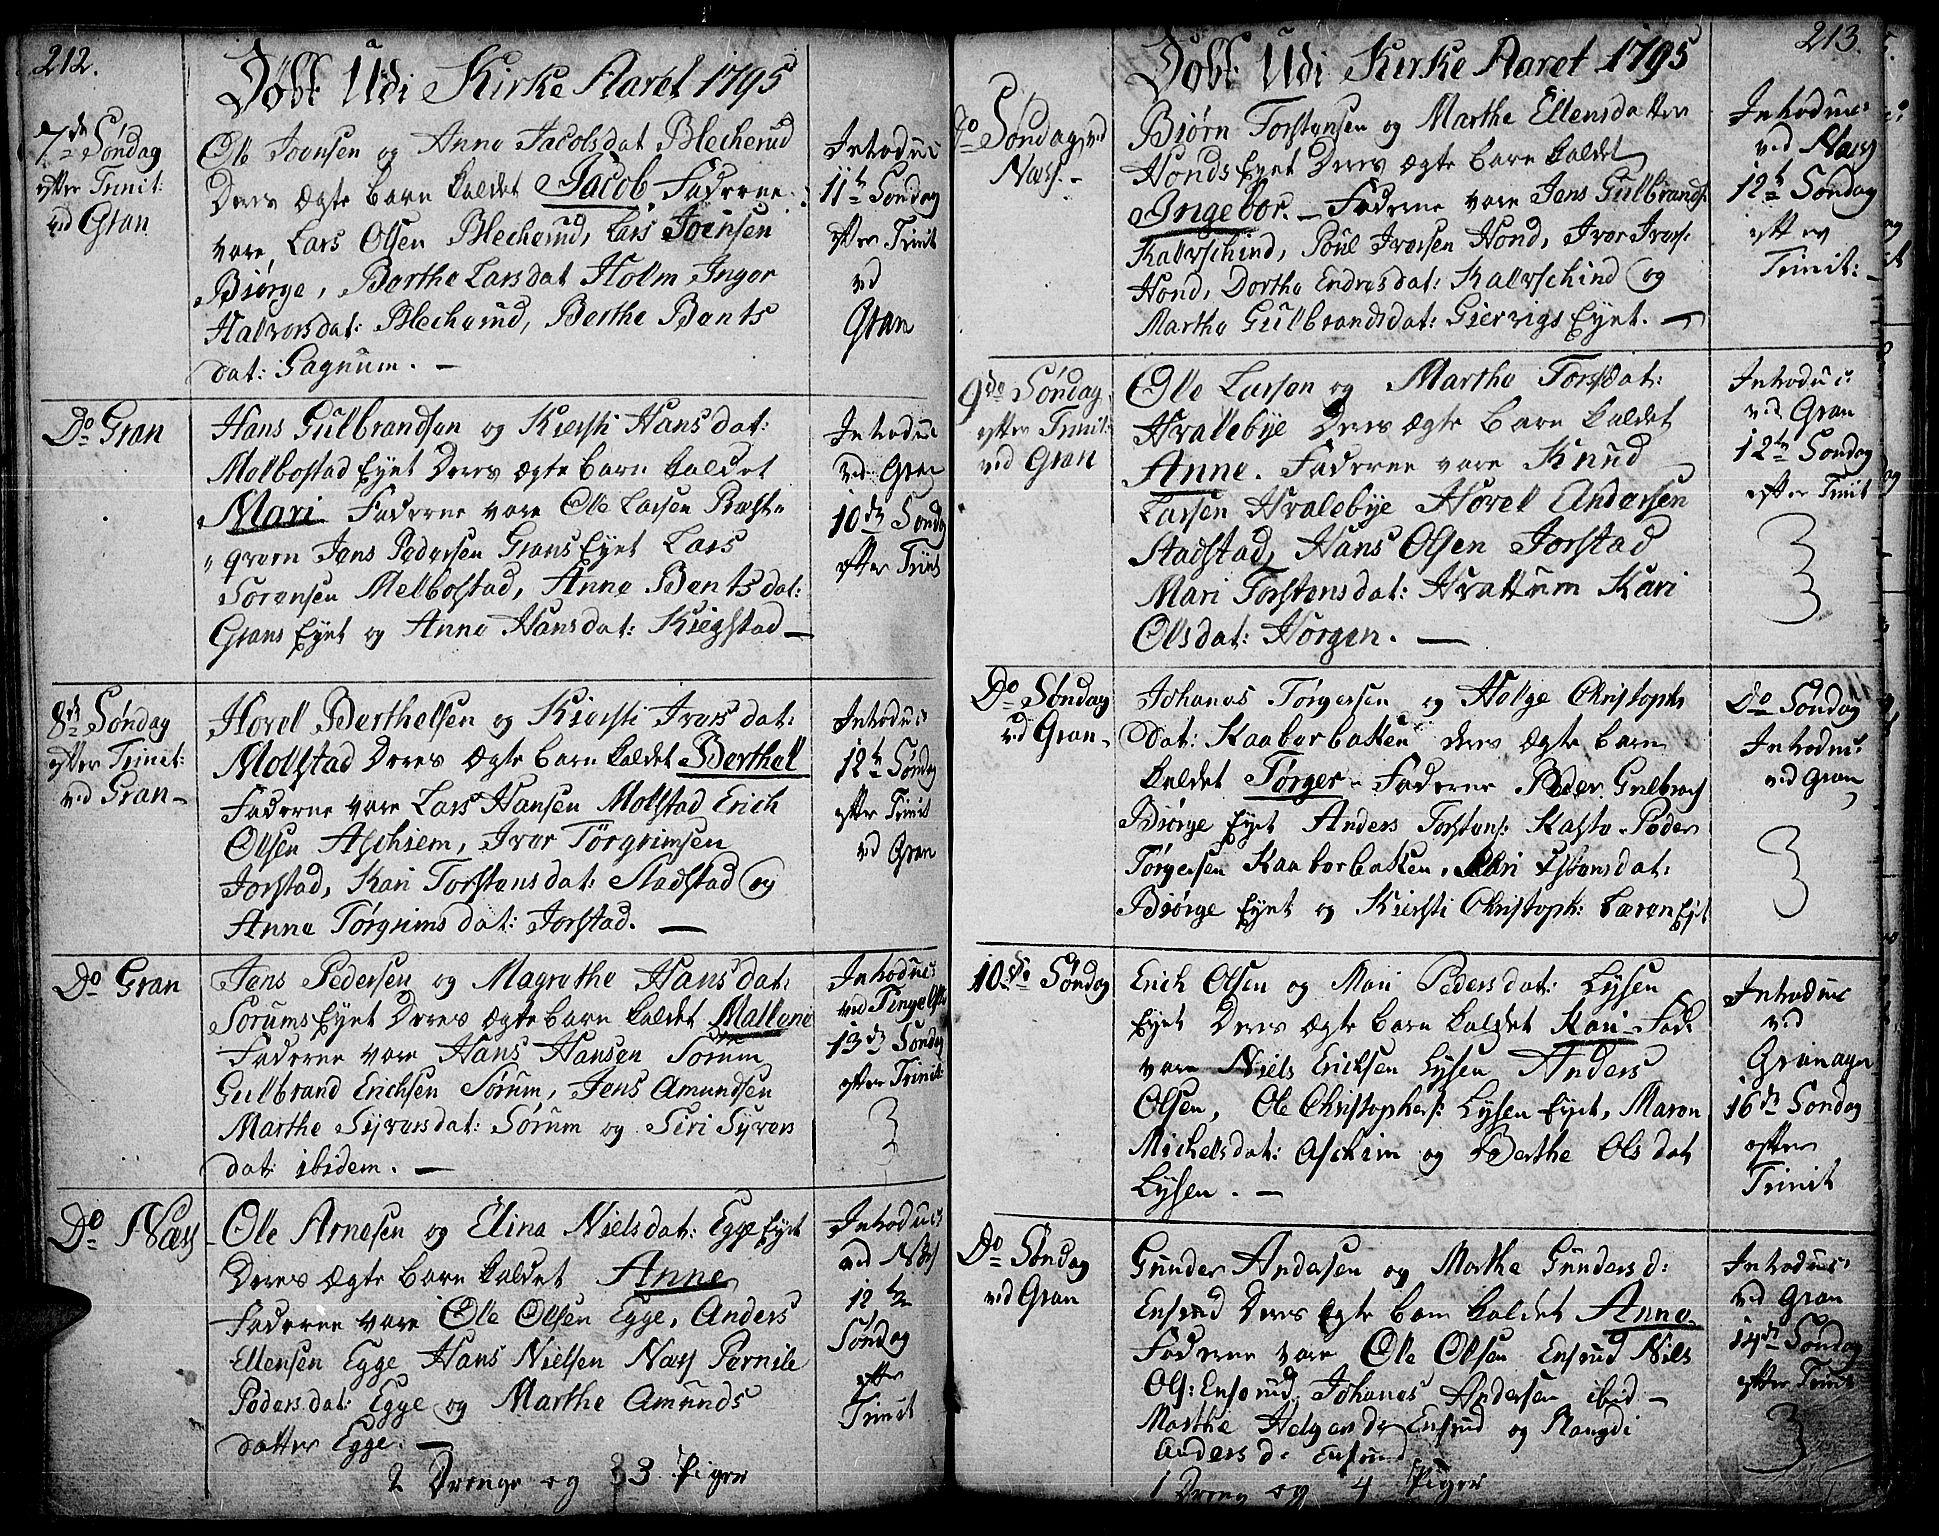 212.
Döbt Udi Kirke Aaret 1795
7de Søndag
efter Trinit:
ved Gran
Ole Joensen og Anne Jacobsdat Blecherud
Deres Ægte Barn kaldet Jacob. Fadderne
vare, Lars Olsen Blecherud, Lars Joensen
Biørge, Berthe Larsdat Holm Inger
Halvorsdat: Blecherud, Berthe Bents
dat: Gagnum. —
Introduc:
11te Søndag
efter Trinit
ved
Gran
Do Gran
Hans Gulbrandsen og Kiersti Hansdat:
Melbostad Eyet Deres ægte barn kaldet
Mari Fadderne vare Ole Larsen Præste
qvern Jens Pedersen Grans Eyet Lars
Sörensen Melbostad, Anne Bentsdat:
Grans Eyet og Anne Hansdat: Kiegstad —
Introduc
ved Gran
10de Søndag
efter Trinit
8de Søndag
efter Trinit:
ved Gran —
Hovel Berthelsen og Kiersti Ivers dat:
Molstad Deres Ægte barn kaldet Berthel
Fadderne vare Lars Hansen Molstad Erich
Olsen Aschiem, Iver Törgrimsen
Jorstad, Kari Torstensdat: Stadstad og
Anne Törgrimsdat: Jorstad. —
Introduc:
12te Søndag
efter Trinit
ved Gran
Do Gran
Jens Pedersen og Magrethe Hansdat:
Sorums Eyet Deres ægte barn kaldet Mallene
Fadderne vare Hans Hansen Sorum
Gulbrand Erichsen Sörum, Jens Amundsen
Marthe Syversdat: Sörum og Siri Syvers
dat: ibidem. —
Introduc:
ved Tingelst
13de Søndag
efter Trinit:
3
Do Næss
Ole Arnesen og Elina Nielsdat: Egge Eyet
Deres Ægte barn kaldet Anne
Fadderne vare Ole Olsen Egge, Anders
Ellensen Egge Hans Nielsen Næss Pernile
Pedersdat: Egge og Marthe Amunds
datter Egge. —
Introduc:
ved Næss
12te
Søndag
efter
Trinit
2 Drenge og 3 Piger
213.
Döbt Udi Kirke Aaret 1795
Do Søndag ved
Næss. —
Biørn Torstensen og Marthe Ellensdatter
Honds Eyet Deres Ægte barn kaldet
Ingebor. — Fadderne vare Jens Gulbrands:
Kalvschind, Poul Iversen Hond, Iver Ivers:
Hond, Dorthe Endresdat: Kalvschind og
Marthe Gulbrandsdat: Giervigs Eyet. —
Introduc:
ved Næss
12te Søndag
efter
Trinit: —
9de Søndag
efter Trinit:
ved Gran
Ole Larsen og Marthe Torsdat:
Hvalebye Deres Ægte barn kaldet
Anne. Fadderne vare Knud
Larsen Hvalebye Hovel Andersen
Stadstad, Hans Olsen Jorstad
Mari Torstensdat: Hvattum Kari
Olsdat: Horgen. —
Introduc:
ved Gran
12te Søndag
efter Trinit
3
Do Søndag
ved Gran —
Johanes Törgersen og Helge Christophs
dat: Kaaberbakken deres ægte barn
kaldet Törger — Fadderne Peder Gulbrands
Biørge Eyet Anders Torstens: Kaste Peder
Törgersen Kaaberbakken, Mari dat:
Biørge Eyet og Kiersti Christoph: Eyet
Do Søndag
Introduc:
ved Gran
3
10de Søndag
Erich Olsen og Mari Pedersdat: Lysen
Eyet Deres Ægte barn kaldet Kari Fad:
vare Niels Ericksen Lysen Anders
Olsen, Ole Christophers: Lysen Eyet, Maren
Michelsdat: Aschim og Berthe Olsdat
Lysen. —
Introduc
ved
Gran
16de Søndag
efter
Trinit
Do Søndag
ved Gran
Gunder Andersen og Marthe Gundersd:
Ensrud Deres Ægte barn kaldet Anne
Fadderne vare Ole Olsen Ensrud Niels
Ols: Ensrud, Johanes Andersen ibid —
Marthe Helgesd: Ensrud og Rangdi
Anders d: Ensrud
Introduc:
ved Gran
14de Søndag
efter Trinit
3
1 Dreng og 4 Piger